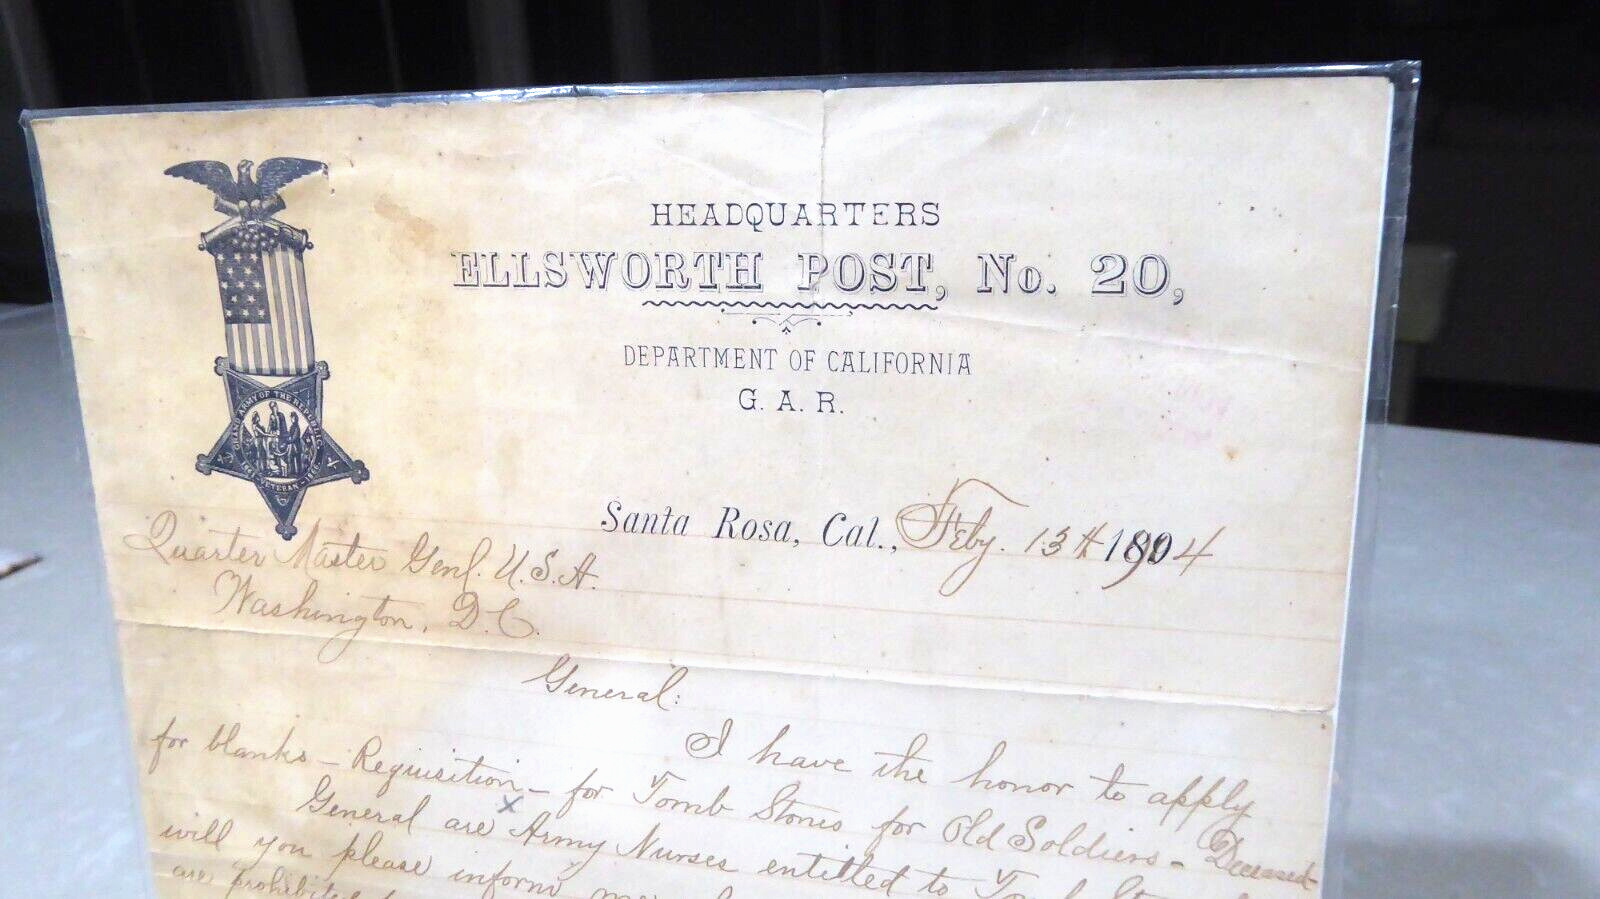 HEADQUARTERS
ELLSWORTH POST, No. 20,
DEPARTMENT OF CALIFORNIA
G. A. R.
GRAND ARMY OF THE REPUBLIC
1861 - VETERAN - 1866
Santa Rosa, Cal., Feby. 13th 1904
Quarter Master Genl. U.S.A.
Washington, D.C.
General:
I have the honor to apply
for blanks - Requisition - for Tomb Stones for Old Soldiers - Deceased
General are Army Nurses entitled to Tomb
will you please inform me
are prohibited